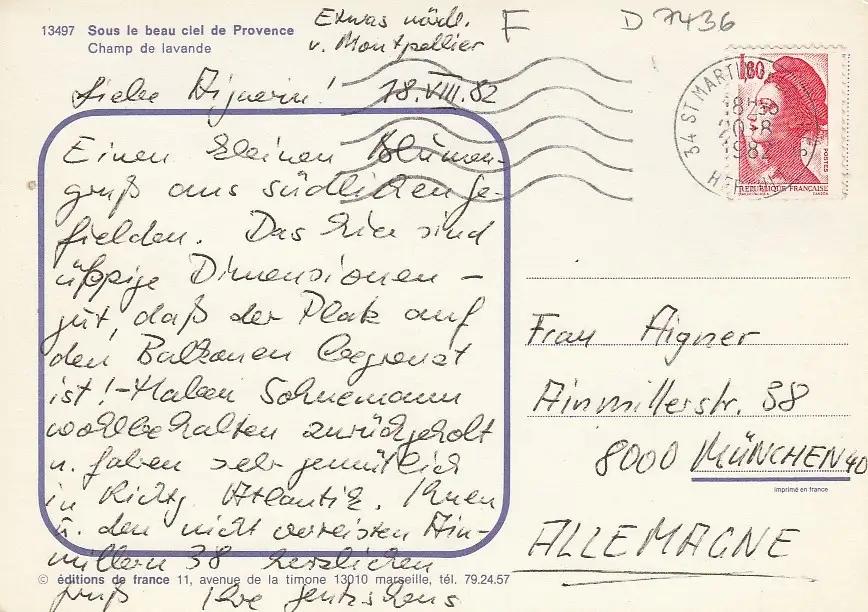 13497 Sous le beau ciel de Provence
Champ de lavande
Etwas nördl.
v. Montpellier
F
D 7436
Liebe Aignerin! 18.VIII.82
Einen kleinen Blumen-
gruß aus südlichen Ge-
fielden. Das hier sind
üppige Dimensionen –
gut, daß der Platz auf
den Balkonen begrenzt
ist! – Haben Sohnemann
wohlbehalten zurückgeholt
u. fahren sehr gemütlich
in Richtg Atlantik. Ihnen
u. den nicht verreisten Ain-
millern 38 herzlichen
Gruß Ihre
1,80
34 ST MARTIN
18H
20-8
1982
POSTES
REPUBLIQUE FRANÇAISE
Frau Aigner
Ainmillerstr. 38
8000 MÜNCHEN 40
imprimé en france
ALLEMAGNE
© éditions de france 11, avenue de la timone 13010 marseille, tél. 79.24.57